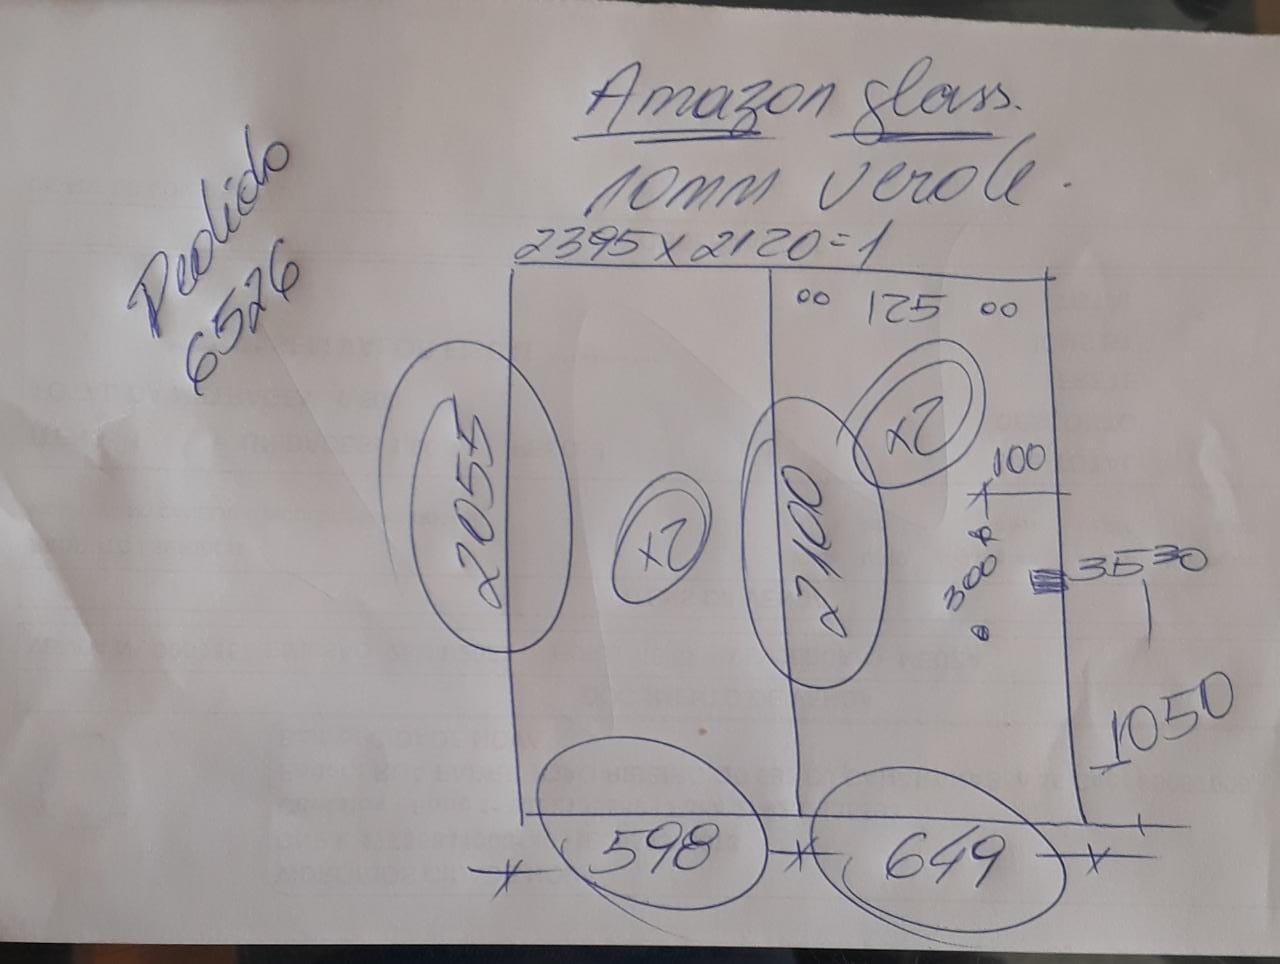 Amazon glass.
10mm verde.
Pedido
6526
2395 x 2120 = 1
125
x2
2055
x2
2100
100
300
3530
1050
598
649